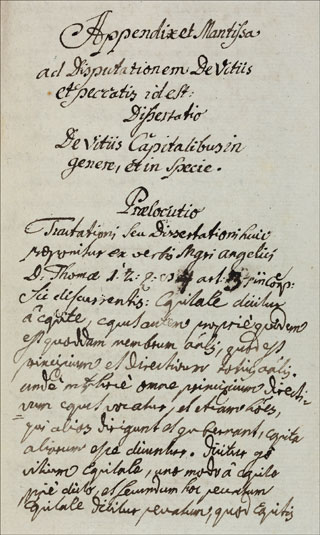 Appendix et Mantissa
ad Disputationem De Vitiis
et Peccatis id est:
Dissertatio
De Vitiis Capitalibus in
genere, et in specie.
Prælocutio
Tractationi seu Dissertationi huic
ex verbis Mgri angelici
D. Thomæ 1. 2. q. 84 art. 3 in Corp:
sic discurrentis: Capitale dicitur
à capite, caput autem propriè quidem
est quoddam membrum aalis, quod est
principium et directivum totius aalis.
unde omne principium directi-
vum caput vocatur, et etiam hoēs,
qui alios dirigunt et gubernant, capita
aliorum esse dicuntur. dicitur go
vitium Capitale, uno modo à capite
pprie dicto, et secundum hoc peccatum
Capitale dicitur peccatum, quod capitis